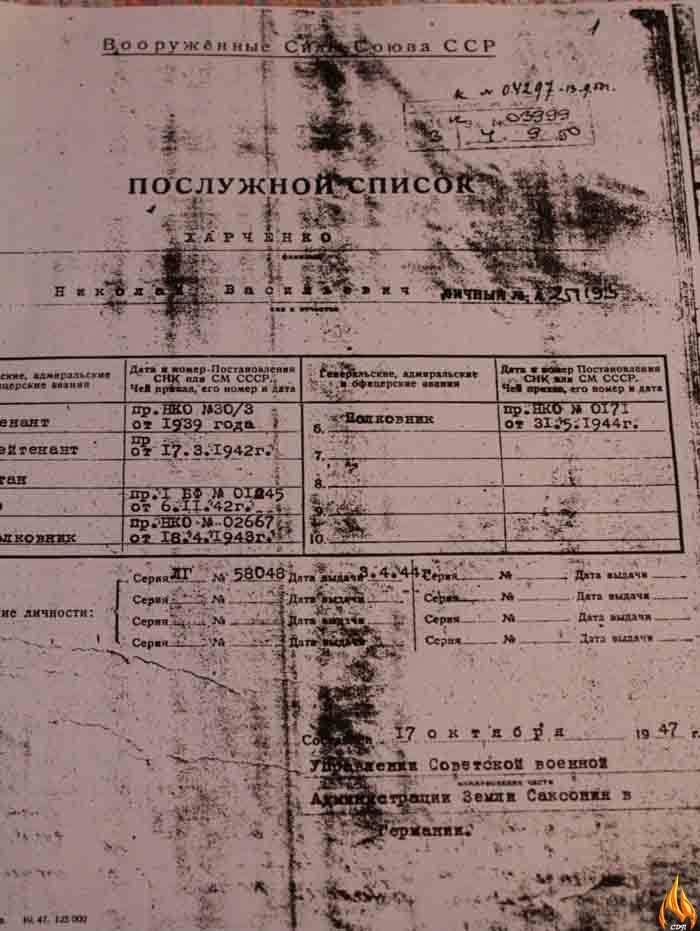 1
Вооружённые Силы Союза ССР
к № 04297-13.9.50г.
03999
3 | 4. 9. 50
ПОСЛУЖНОЙ СПИСОК
ХАРЧЕНКО
фамилия
Николай Васильевич личный №
имя и отчество
ские, адмиральские
ицерские звания
Дата и номер Постановления
СНК или СМ СССР.
Чей приказ, его номер и дата
Генеральские, адмиральские
и офицерские звания
Дата и номер Постановления
СНК или СМ СССР.
Чей приказ, его номер и дата
енант
пр.НКО №30/3
от 1939 года
6. Полковник
пр.НКО № 0171
от 31.5.1944г.
ейтенант
пр
от 17.3.1942г.
7.
тан
8.
пр.1 БФ №
от 6.11.42г.
9.
олковник
пр.НКО № 02667
от 18.4.1943г.
10.
Серия ЛГ № 58048 Дата выдачи 3.4.44г. Серия № Дата выдачи
Серия № Дата выдачи Серия № Дата выдачи
ие личности:
Серия № Дата выдачи Серия № Дата выдачи
Серия № Дата выдачи Серия № Дата выдачи
17 октября 1947 г.
Управлении Советской военной
наименование части
Администрации Земли Саксония в
Германии.
10. 47. 125 000
СДП